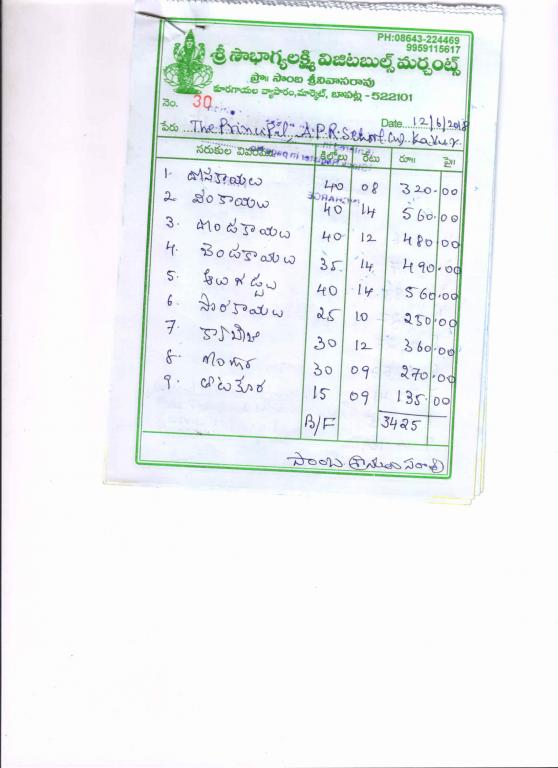 PH:08643-224469
9959115617
శ్రీ సౌభాగ్యలక్ష్మి విజిటబుల్స్ మర్చంట్స్
ప్రొ॥ సాంబ శ్రీనివాసరావు
కూరగాయల వ్యాపారం,మార్కెట్, బాపట్ల - 522101
నెం. 30 Date 12/6/2018
పేరు The Principal, A.P.R. School
సరుకుల వివరము కిలోలు రేటు రూ॥ పై॥
1. దోసకాయలు 40 08 320.00
2 వంకాయలు 40 14 560.00
3. దొండకాయలు 40 12 480.00
4. బెండకాయలు 35 14 490.00
5. ఆలుగడ్డలు 40 14 560.00
6 సొరకాయలు 25 10 250.00
7 క్యాబేజీ 30 12 360.00
8. 30 09 270.00
9. తోటకూర 15 09 135.00
B/F 3425